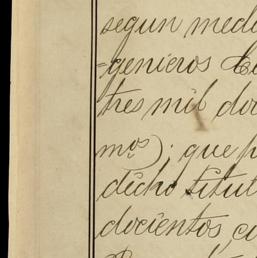 segun medi
=genieros
tres mil do
mos); que p
dicho titul
docientos, c